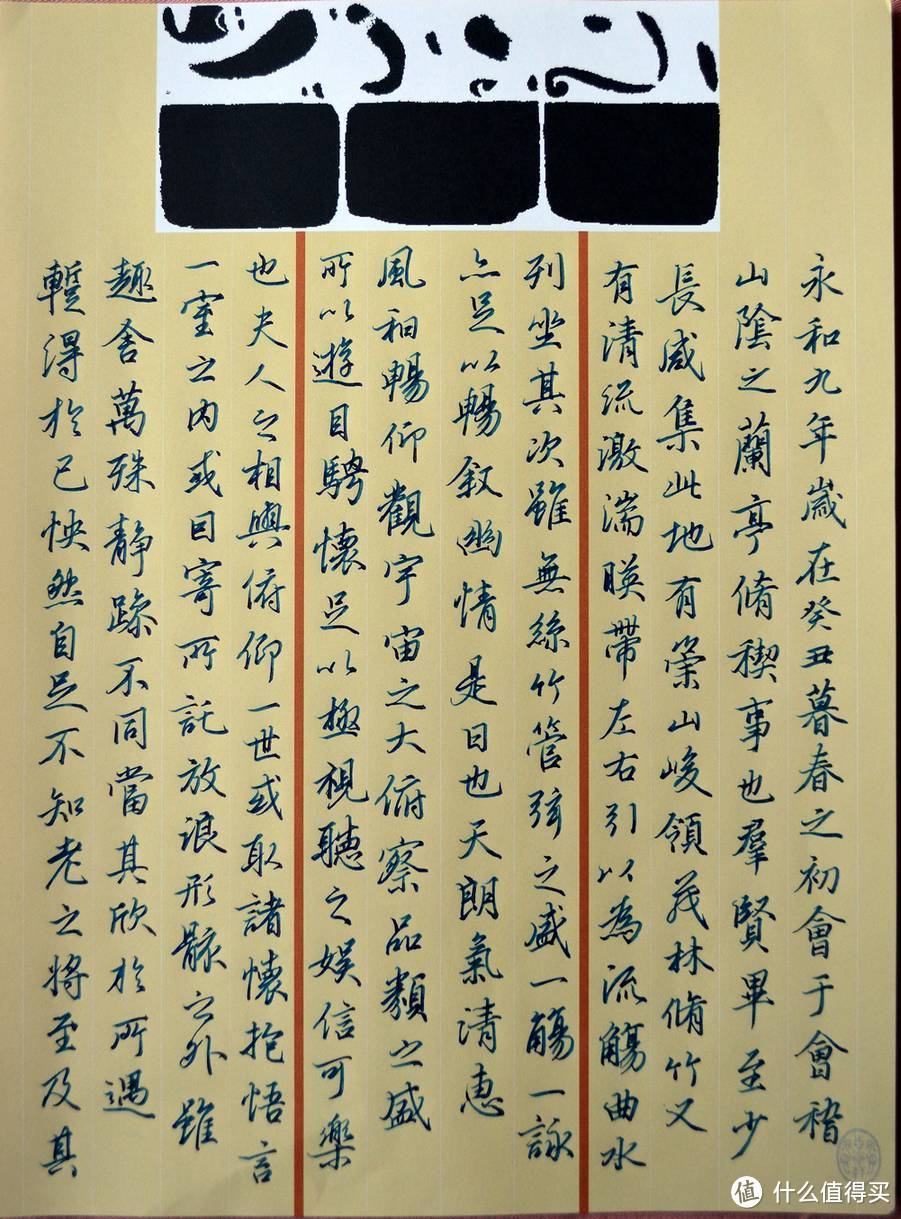 永和九年歲在癸丑暮春之初會于會稽
山陰之蘭亭脩稧事也羣賢畢至少
長咸集此地有崇山峻領茂林脩竹又
有清流激湍暎帶左右引以為流觴曲水
列坐其次雖無絲竹管弦之盛一觴一詠
亦足以暢叙幽情是日也天朗氣清惠
風和暢仰觀宇宙之大俯察品類之盛
所以遊目騁懷足以極視聽之娛信可樂
也夫人之相與俯仰一世或取諸懷抱悟言
一室之内或因寄所託放浪形骸之外雖
趣舍萬殊静躁不同當其欣於所遇
蹔得於己怏然自足不知老之將至及其
值 什么值得买